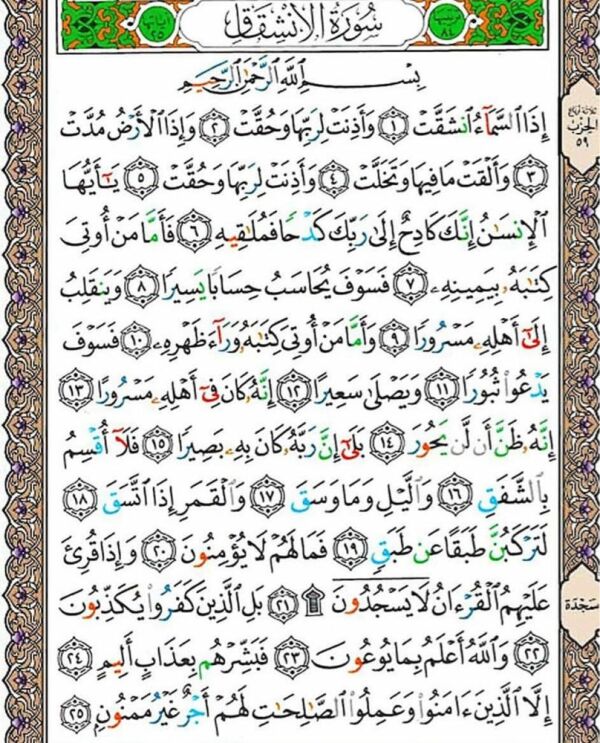 ترتيبها ٨٤ سُورَةُ الِانْشِقَاقِ آياتها ٢٥
بِسْمِ اللَّهِ الرَّحْمَٰنِ الرَّحِيمِ
إِذَا السَّمَآءُ انشَقَّتْ ١ وَأَذِنَتْ لِرَبِّهَا وَحُقَّتْ ٢ وَإِذَا الْأَرْضُ مُدَّتْ
٣ وَأَلْقَتْ مَا فِيهَا وَتَخَلَّتْ ٤ وَأَذِنَتْ لِرَبِّهَا وَحُقَّتْ ٥ يَٰٓأَيُّهَا
الْإِنسَٰنُ إِنَّكَ كَادِحٌ إِلَىٰ رَبِّكَ كَدْحًا فَمُلَٰقِيهِ ٦ فَأَمَّا مَنْ أُوتِيَ
كِتَٰبَهُۥ بِيَمِينِهِۦ ٧ فَسَوْفَ يُحَاسَبُ حِسَابًا يَسِيرًا ٨ وَيَنقَلِبُ
إِلَىٰٓ أَهْلِهِۦ مَسْرُورًا ٩ وَأَمَّا مَنْ أُوتِيَ كِتَٰبَهُۥ وَرَآءَ ظَهْرِهِۦ ١٠ فَسَوْفَ
يَدْعُوا۟ ثُبُورًا ١١ وَيَصْلَىٰ سَعِيرًا ١٢ إِنَّهُۥ كَانَ فِىٓ أَهْلِهِۦ مَسْرُورًا ١٣
إِنَّهُۥ ظَنَّ أَن لَّن يَحُورَ ١٤ بَلَىٰٓ إِنَّ رَبَّهُۥ كَانَ بِهِۦ بَصِيرًا ١٥ فَلَآ أُقْسِمُ
بِالشَّفَقِ ١٦ وَالَّيْلِ وَمَا وَسَقَ ١٧ وَالْقَمَرِ إِذَا اتَّسَقَ ١٨
لَتَرْكَبُنَّ طَبَقًا عَن طَبَقٍ ١٩ فَمَا لَهُمْ لَا يُؤْمِنُونَ ٢٠ وَإِذَا قُرِئَ
عَلَيْهِمُ الْقُرْءَانُ لَا يَسْجُدُونَ ۩ ٢١ بَلِ الَّذِينَ كَفَرُوا۟ يُكَذِّبُونَ
٢٢ وَاللَّهُ أَعْلَمُ بِمَا يُوعُونَ ٢٣ فَبَشِّرْهُم بِعَذَابٍ أَلِيمٍ ٢٤
إِلَّا الَّذِينَ ءَامَنُوا۟ وَعَمِلُوا۟ الصَّٰلِحَٰتِ لَهُمْ أَجْرٌ غَيْرُ مَمْنُونٍ ٢٥
ثلاثة أرباع
الحزب
٥٩
سجدة